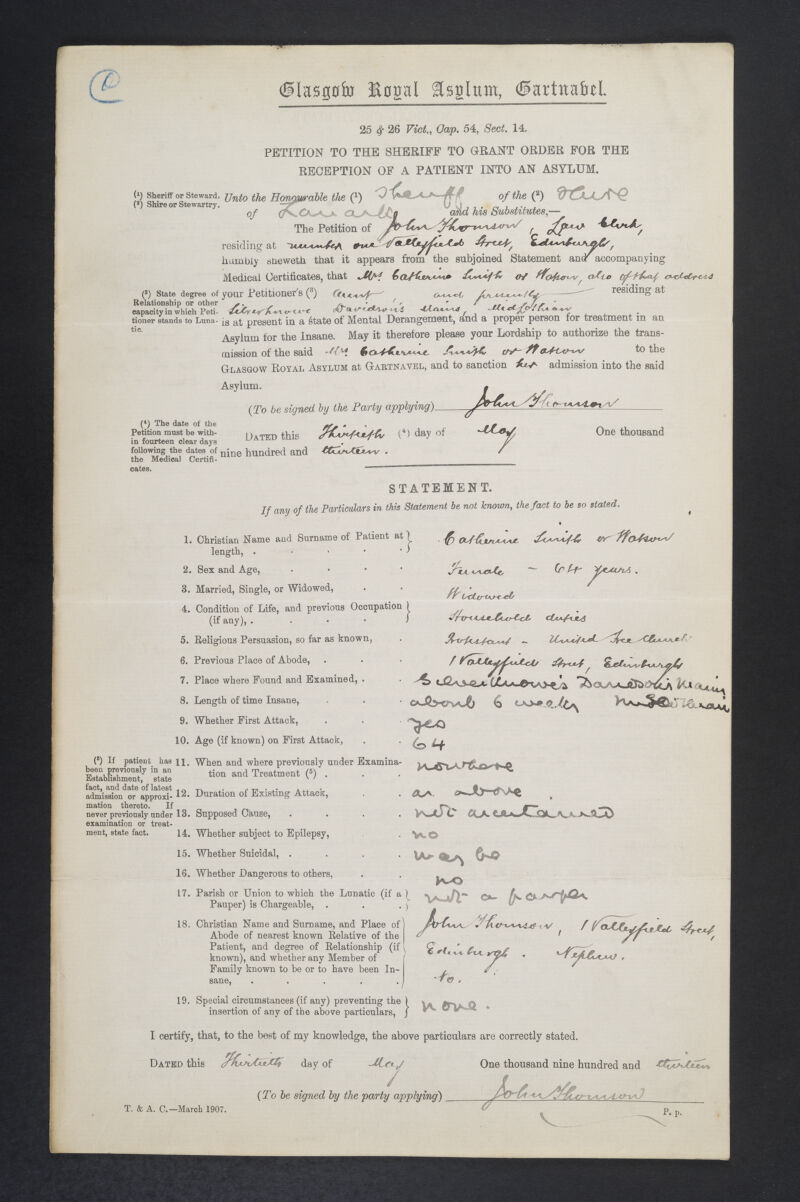 Glasgow Royal Asylum, Gartnabel.
25 & 26 Vict., Cap. 54, Sect. 14.
PETITION TO THE SHERIFF TO GRANT ORDER FOR THE
RECEPTION OF A PATIENT INTO AN ASYLUM.
(1) Sheriff or Steward.
(2) Shire or Stewartry.
Unto the Honourable the (1) Sheriff of the (2) Shire
of Lanark and his Substitutes,—
The Petition of John Thomson, Law Clerk,
residing at number one Valleyfield Street, Edinburgh,
humbly sheweth that it appears from the subjoined Statement and accompanying
Medical Certificates, that Mrs. Catherine Smith or Watson, also of that address
(3) State degree of
Relationship or other
capacity in which Peti-
tioner stands to Luna-
tic.
your Petitioner's (3) aunt, and presently residing at
Silverknowe Davidson's Mains, Midlothian
is at present in a state of Mental Derangement, and a proper person for treatment in an
Asylum for the Insane. May it therefore please your Lordship to authorize the trans-
mission of the said Mrs. Catherine Smith or Watson to the
GLASGOW ROYAL ASYLUM AT GARTNAVEL, and to sanction her admission into the said
Asylum.
(To be signed by the Party applying) John Thomson
(4) The date of the
Petition must be with-
in fourteen clear days
following the dates of
the Medical Certifi-
cates.
DATED this Thirtieth (4) day of May One thousand
nine hundred and thirteen.
STATEMENT.
If any of the Particulars in this Statement be not known, the fact to be so stated.
1. Christian Name and Surname of Patient at
length, . . . . . Catherine Smith or Watson
2. Sex and Age, . . . . Female – 64 years.
3. Married, Single, or Widowed, . . Widowed
4. Condition of Life, and previous Occupation
(if any), . . . . Household duties
5. Religious Persuasion, so far as known, . Protestant – United Free Church
6. Previous Place of Abode, . . . 1 Valleyfield Street, Edinburgh
7. Place where Found and Examined, . . Silverknowe's Davidson's Mains
Midlothian
8. Length of time Insane, . . . about 6 weeks
9. Whether First Attack, . . . yes
10. Age (if known) on First Attack, . . 64
(5) If patient has
been previously in an
Establishment, state
fact, and date of latest
admission or approxi-
mation thereto. If
never previously under
examination or treat-
ment, state fact.
11. When and where previously under Examina-
tion and Treatment (5) . . . nowhere
12. Duration of Existing Attack, . . as above
13. Supposed Cause, . . . . not ascertained
14. Whether subject to Epilepsy, . no
15. Whether Suicidal, . . . . may be
16. Whether Dangerous to others, . . no
17. Parish or Union to which the Lunatic (if a
Pauper) is Chargeable, . . . not a pauper
18. Christian Name and Surname, and Place of
Abode of nearest known Relative of the
Patient, and degree of Relationship (if
known), and whether any Member of
Family known to be or to have been In-
sane, . . . . .
John Thomson, 1 Valleyfield Street,
Edinburgh. Nephew.
No.
19. Special circumstances (if any) preventing the
insertion of any of the above particulars, none.
I certify, that, to the best of my knowledge, the above particulars are correctly stated.
DATED this Thirtieth day of May One thousand nine hundred and thirteen
(To be signed by the party applying) John Thomson
T. & A. C.—March 1907.
P. p.